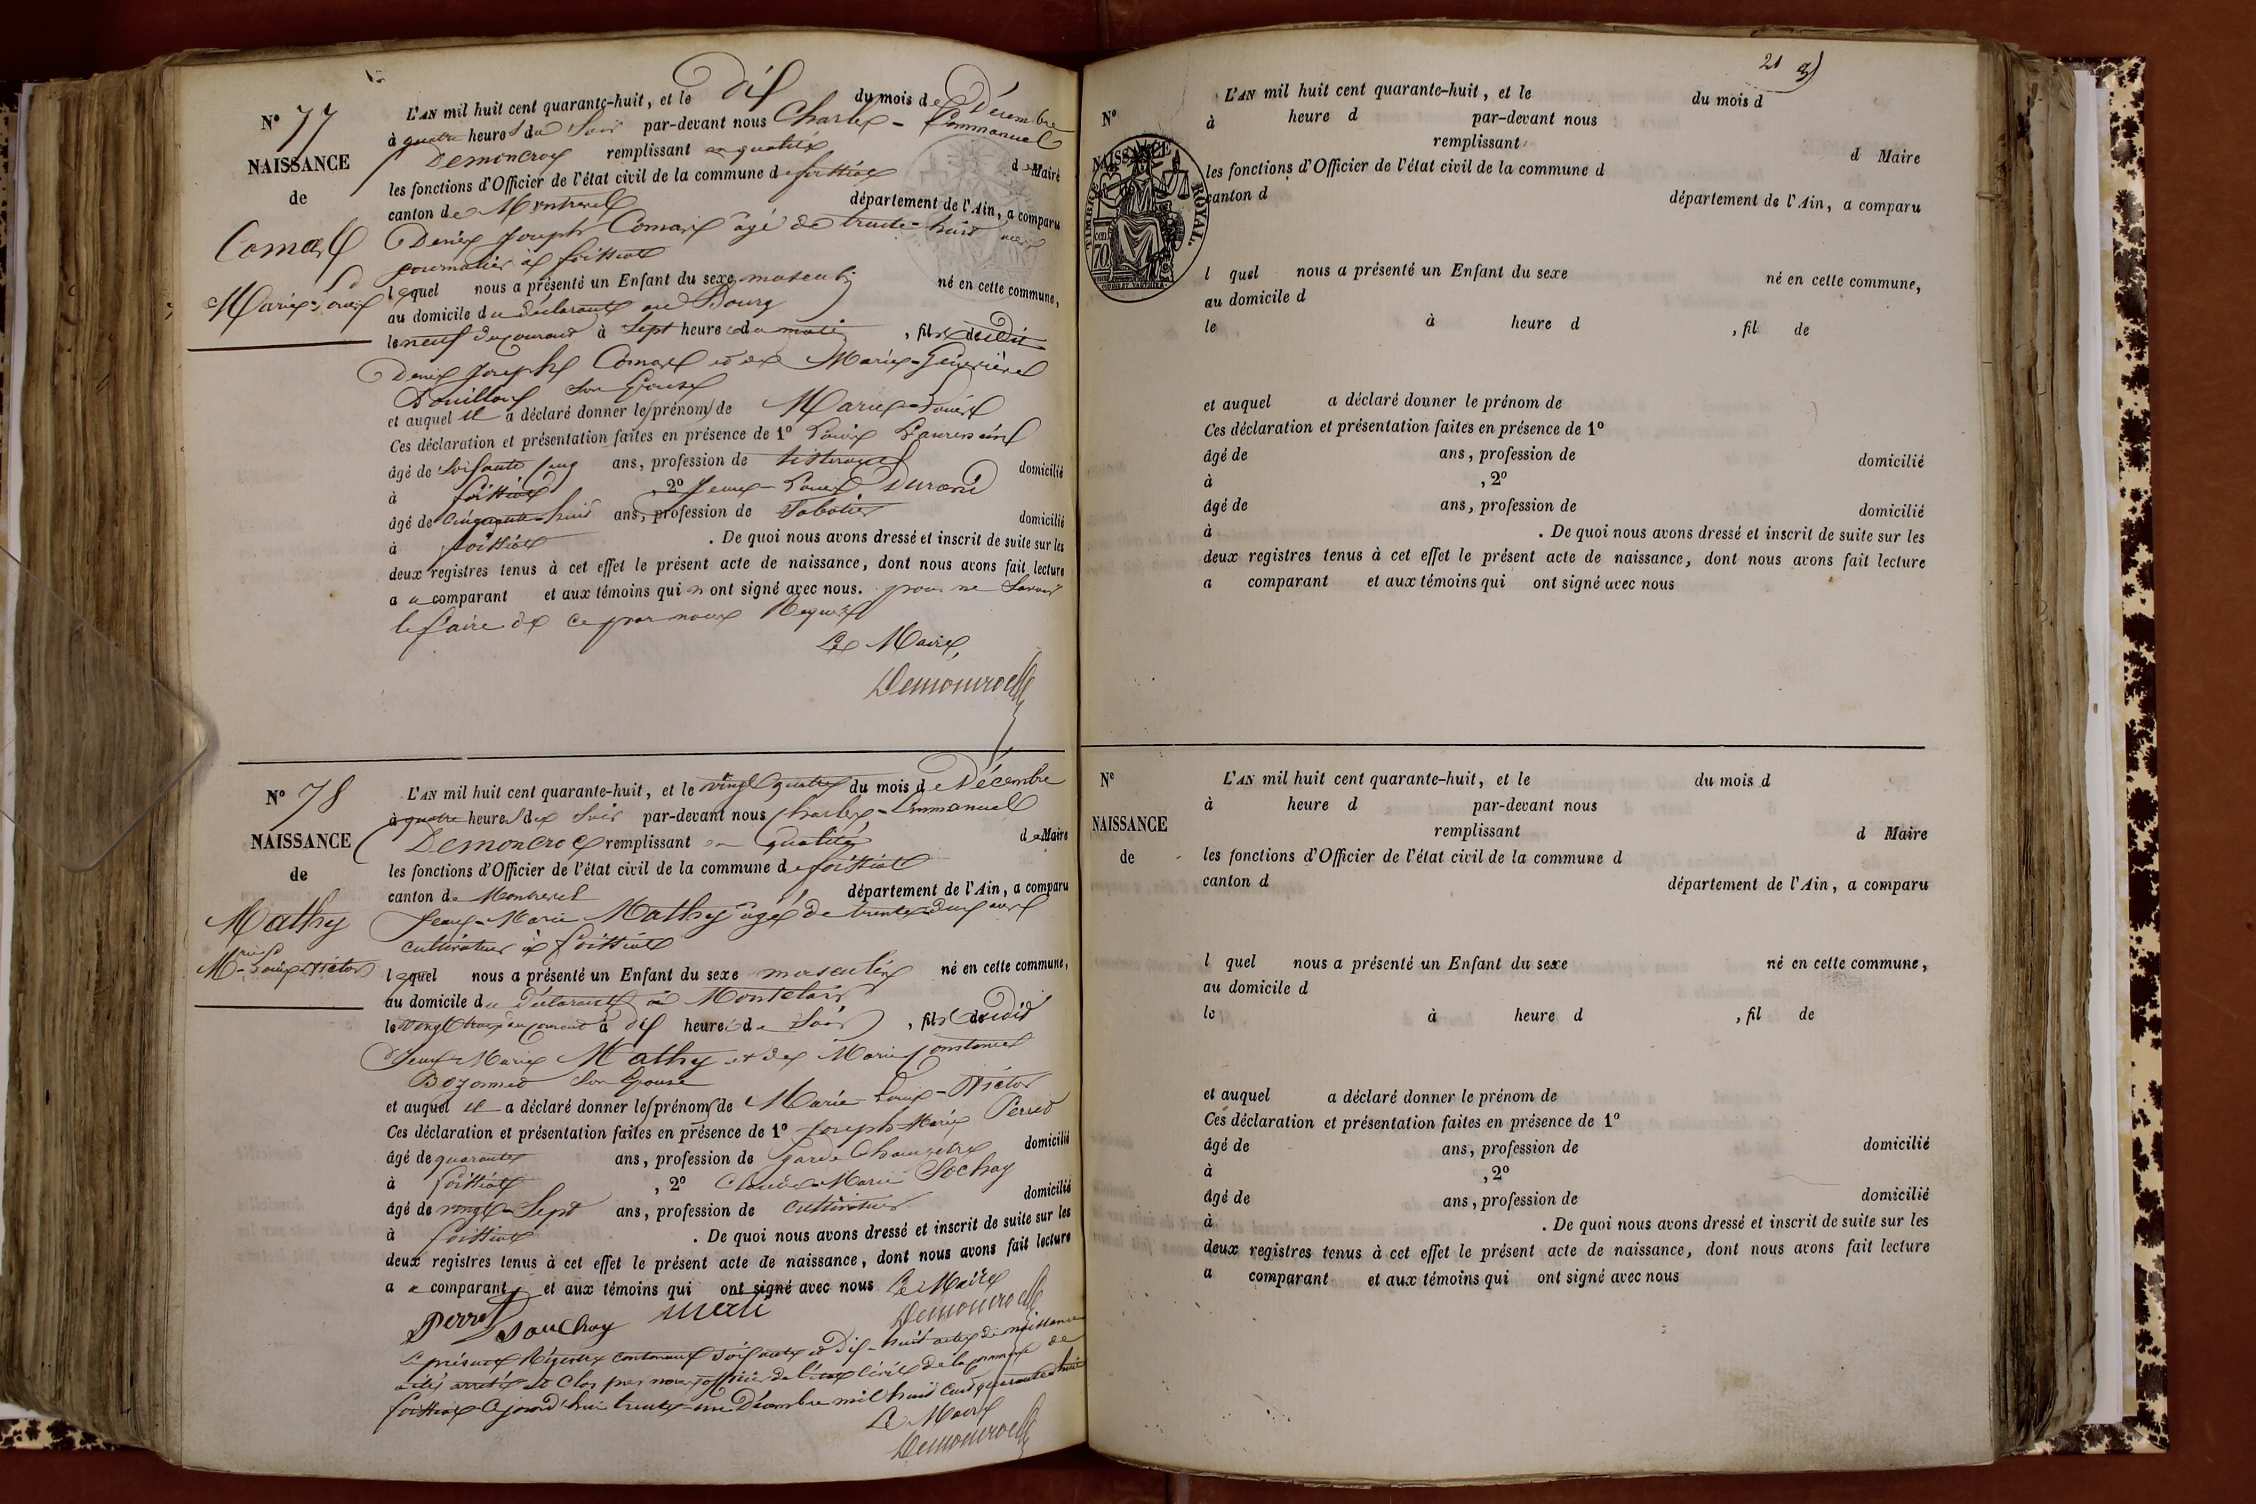 N° 77
NAISSANCE
de
Comas
Marie-Louis
L'AN mil huit cent quarante-huit, et le dix du mois de Décembre
à quatre heures du Soir par-devant nous Charles-Emmanuel
Demoncroc remplissant en qualité de Maire
les fonctions d'Officier de l'état civil de la commune de foissiat
canton de Montrevel département de l'Ain, a comparu
Denis Joseph Comas âgé de trente-huit ans
journalier à foissiat
lequel nous a présenté un Enfant du sexe masculin né en cette commune,
au domicile du déclarant au Bourg
le neuf du courant à Sept heures du matin, fils de dit
Denis Joseph Comas et de Marie-Geneviève
Douillon Son Epouse
et auquel il a déclaré donner les prénoms de Marie-Louis
Ces déclaration et présentation faites en présence de 1° Louis
âgé de Soixante cinq ans, profession de tisserand domicilié
à foissiat, 2° Jean-Louis Durand
âgé de cinquante-huit ans, profession de Sabotier domicilié
à foissiat. De quoi nous avons dressé et inscrit de suite sur les
deux registres tenus à cet effet le présent acte de naissance, dont nous avons fait lecture
au comparant et aux témoins qui n ont signé avec nous. pour ne Savoir
le faire de ce par nous Requis
Le Maire,
Demoncroc
N° 78
NAISSANCE
de
Mathy
Mrie-Louis-Victor
L'AN mil huit cent quarante-huit, et le vingt quatre du mois de Décembre
à quatre heures du Soir par-devant nous Charles-Emmanuel
Demoncroc remplissant en qualité de Maire
les fonctions d'Officier de l'état civil de la commune de foissiat
canton de Montrevel département de l'Ain, a comparu
Jean-Marie Mathy âgé de trente-deux ans
cultivateur à foissiat
lequel nous a présenté un Enfant du sexe masculin né en cette commune,
au domicile du déclarant à Montclair
le vingt trois du courant à dix heures du Soir, fils dudit
Jean-Marie Mathy et de Marie Constance
Bozonnet Son Epouse
et auquel il a déclaré donner les prénoms de Marie-Louis-Victor
Ces déclaration et présentation faites en présence de 1° Joseph-Marie Perret
âgé de quarante ans, profession de garde Champêtre domicilié
à foissiat, 2° Claude-Marie Sochay
âgé de vingt-Sept ans, profession de cultivateur domicilié
à foissiat. De quoi nous avons dressé et inscrit de suite sur les
deux registres tenus à cet effet le présent acte de naissance, dont nous avons fait lecture
au comparant et aux témoins qui ont signé avec nous Le Maire
Perret Souchay Demoncroc
Le présent Régistre contenant Soixante et dix-huit actes de naissance
a été arrêté et clos par nous officier de l'état civil de la commune de
foissiat Aujourd'hui trente-un Décembre mil huit cent quarante huit
Le Maire
Demoncroc
21
N°
NAISSANCE
TIMBRE ROYAL.
70
L'AN mil huit cent quarante-huit, et le du mois d
à heure d par-devant nous
remplissant d Maire
les fonctions d'Officier de l'état civil de la commune d
canton d département de l'Ain, a comparu
l quel nous a présenté un Enfant du sexe né en cette commune,
au domicile d
le à heure d , fil de
et auquel a déclaré donner le prénom de
Ces déclaration et présentation faites en présence de 1°
âgé de ans, profession de domicilié
à , 2°
âgé de ans, profession de domicilié
à . De quoi nous avons dressé et inscrit de suite sur les
deux registres tenus à cet effet le présent acte de naissance, dont nous avons fait lecture
a comparant et aux témoins qui ont signé avec nous
N°
NAISSANCE
de
L'AN mil huit cent quarante-huit, et le du mois d
à heure d par-devant nous
remplissant d Maire
les fonctions d'Officier de l'état civil de la commune d
canton d département de l'Ain, a comparu
l quel nous a présenté un Enfant du sexe né en cette commune,
au domicile d
le à heure d , fil de
et auquel a déclaré donner le prénom de
Ces déclaration et présentation faites en présence de 1°
âgé de ans, profession de domicilié
à , 2°
âgé de ans, profession de domicilié
à . De quoi nous avons dressé et inscrit de suite sur les
deux registres tenus à cet effet le présent acte de naissance, dont nous avons fait lecture
a comparant et aux témoins qui ont signé avec nous